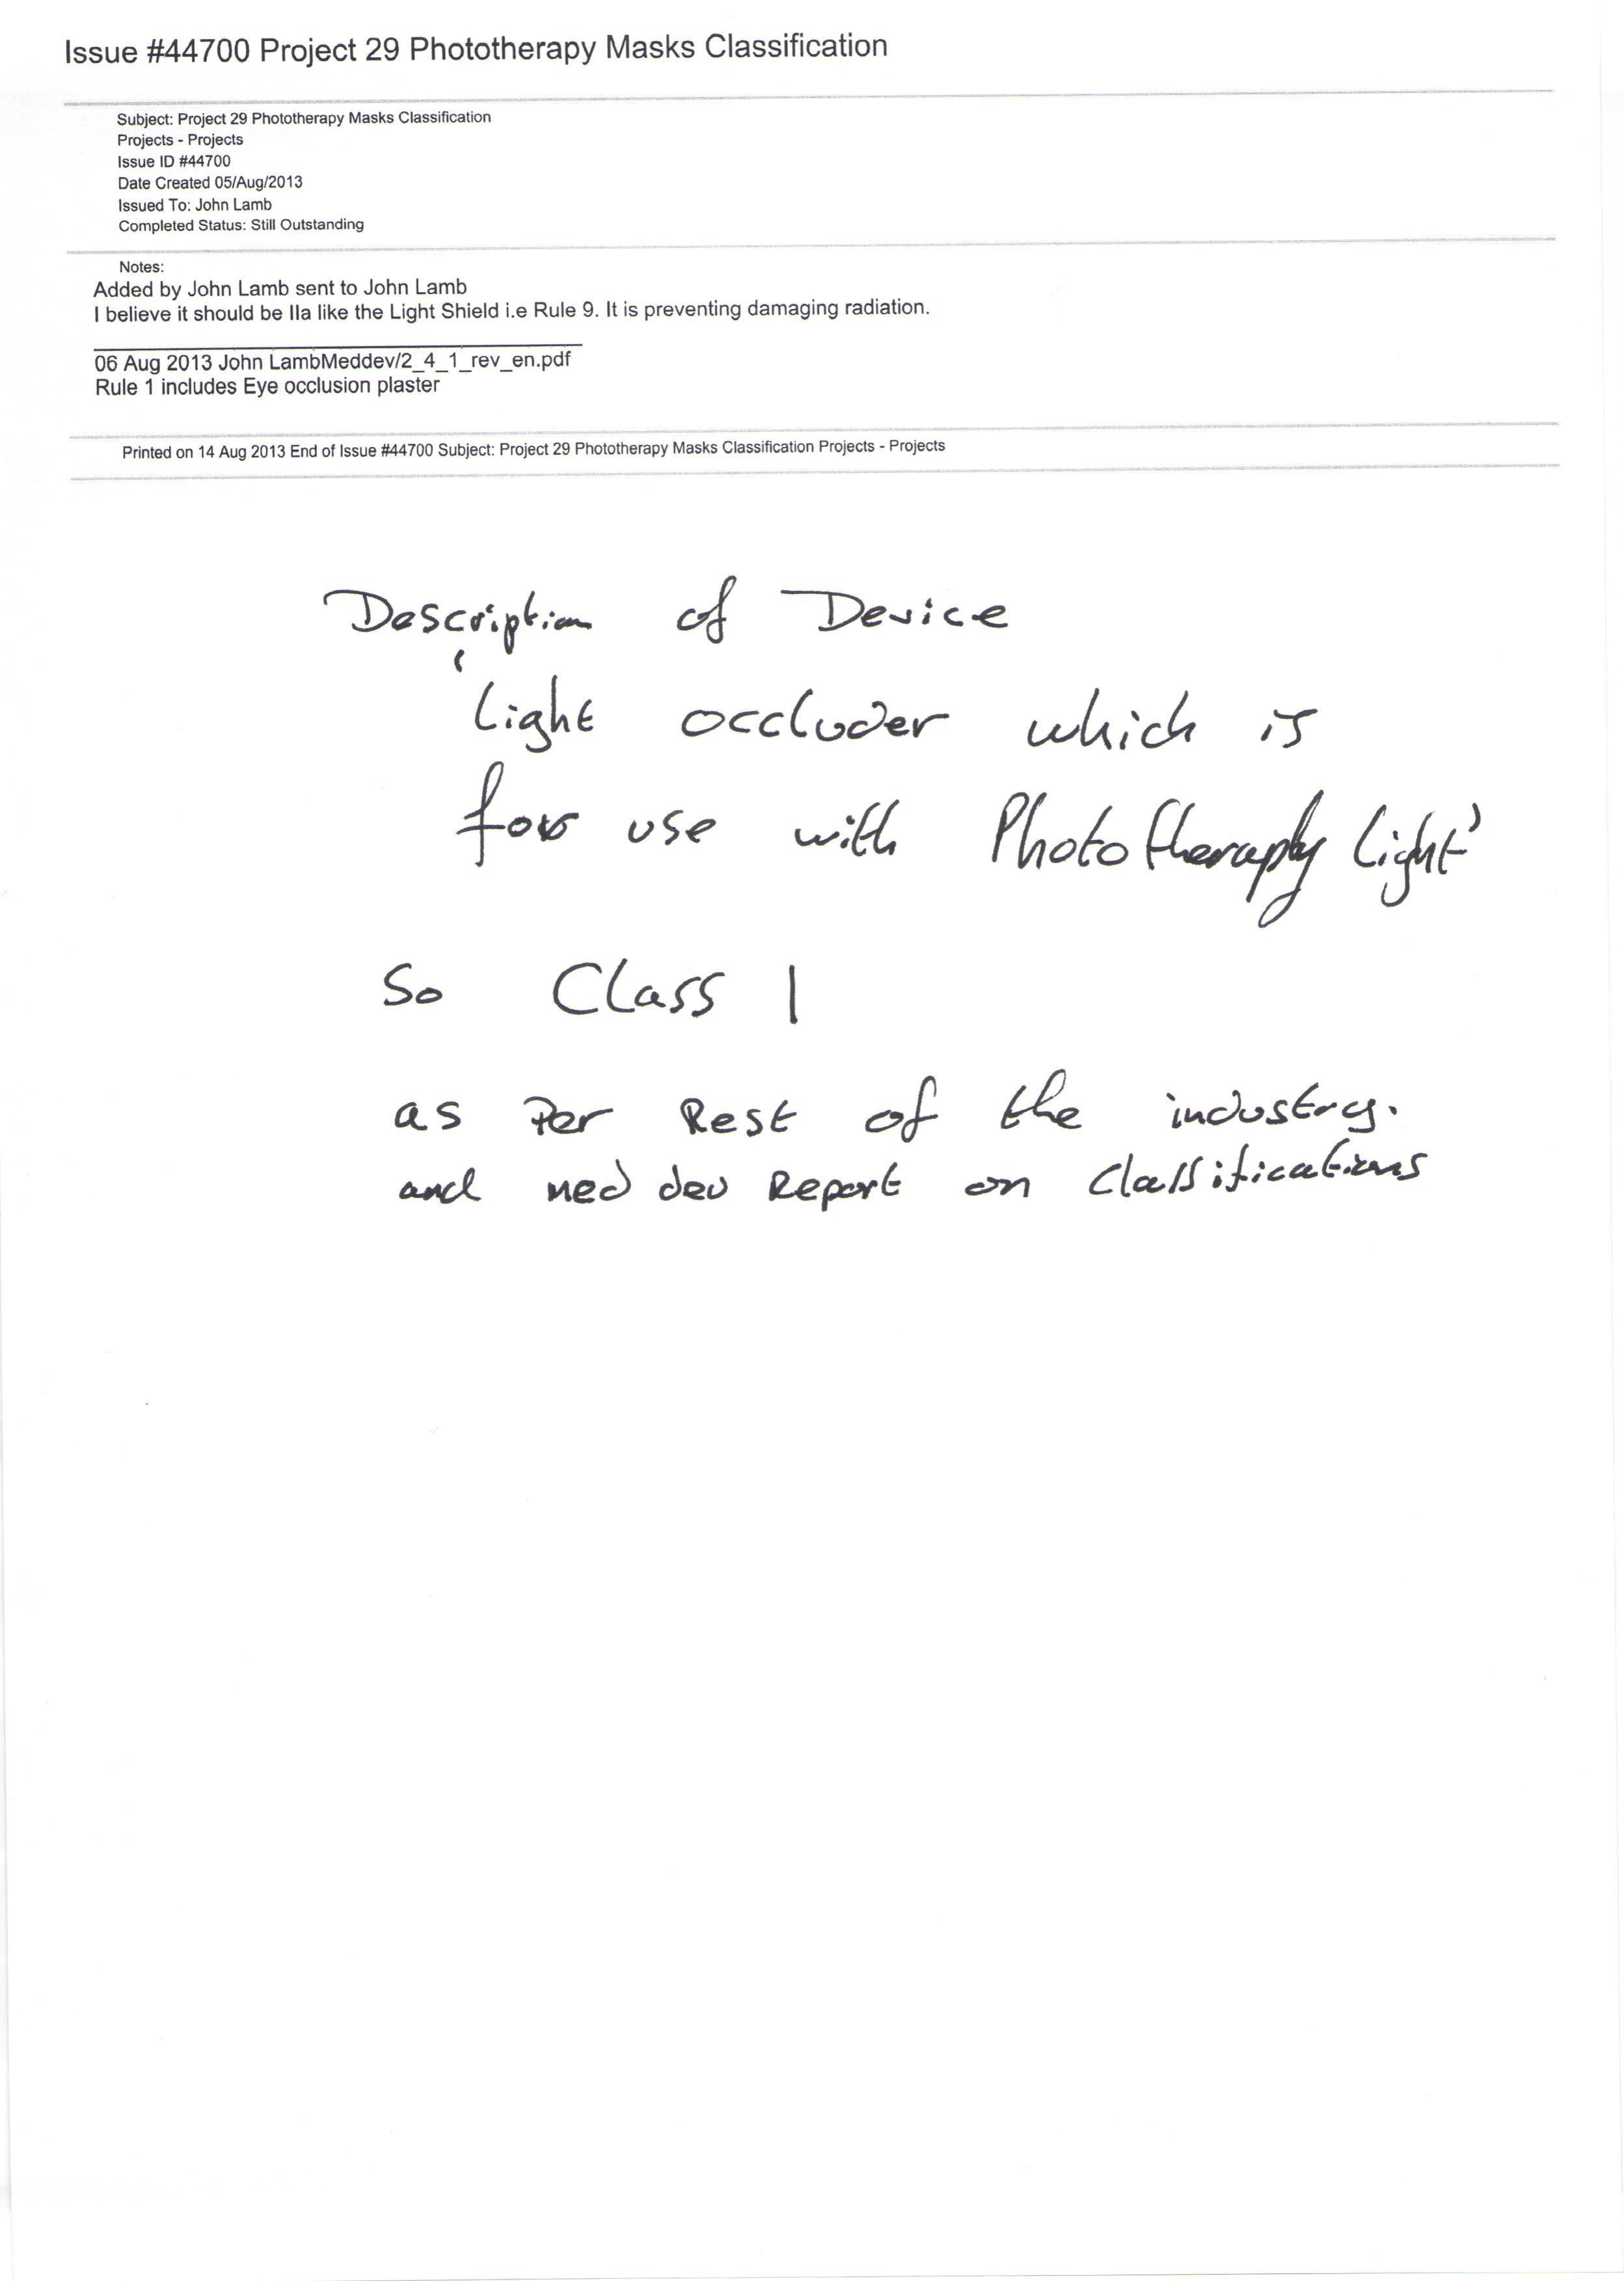 Issue #44700 Project 29 Phototherapy Masks Classification
Subject: Project 29 Phototherapy Masks Classification
Projects - Projects
Issue ID #44700
Date Created 05/Aug/2013
Issued To: John Lamb
Completed Status: Still Outstanding
Notes:
Added by John Lamb sent to John Lamb
I believe it should be IIa like the Light Shield i.e Rule 9. It is preventing damaging radiation.
06 Aug 2013 John LambMeddev/2_4_1_rev_en.pdf
Rule 1 includes Eye occlusion plaster
Printed on 14 Aug 2013 End of Issue #44700 Subject: Project 29 Phototherapy Masks Classification Projects - Projects
Description of Device
'Light occluder which is
for use with Phototherapy light'
So Class 1
as Per Rest of the industry.
and med dev Report on Classifications